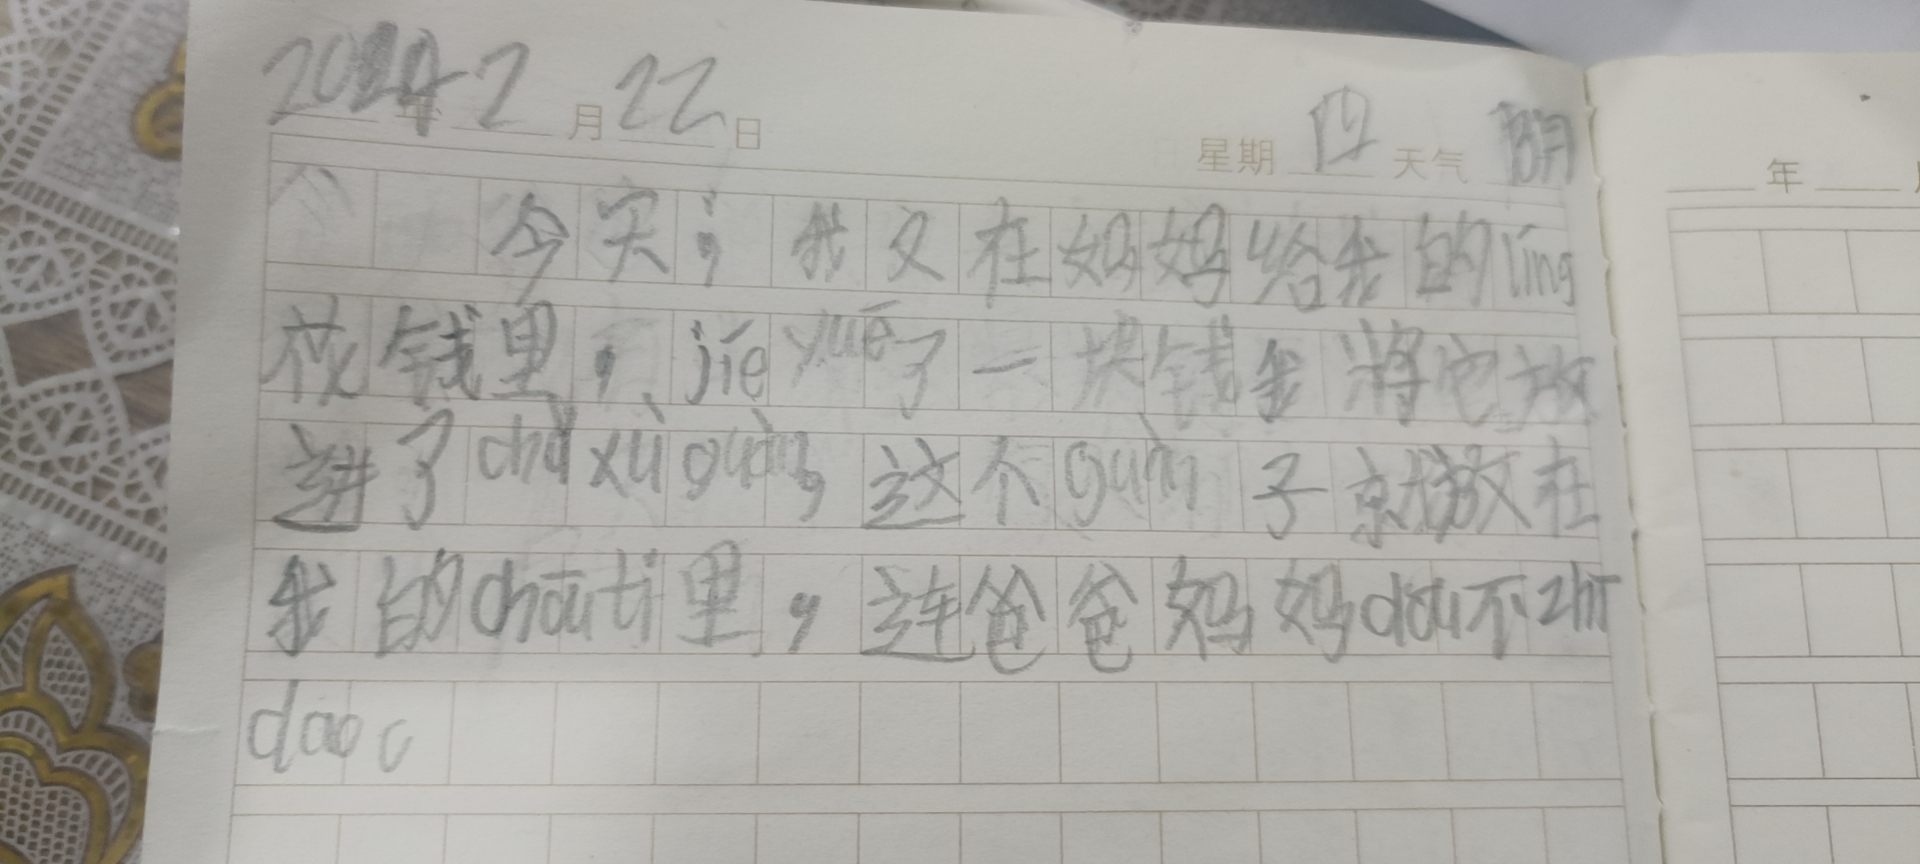 2024年2月22日 星期四天气阴
今天,我又在妈妈给我的líng
花钱里,jié yuē了一块钱我将它放
进了chǔ xù guàn,这个guàn子就放在
我的chōu ti里,连爸爸妈妈dōu不zhī
dao。
年 月